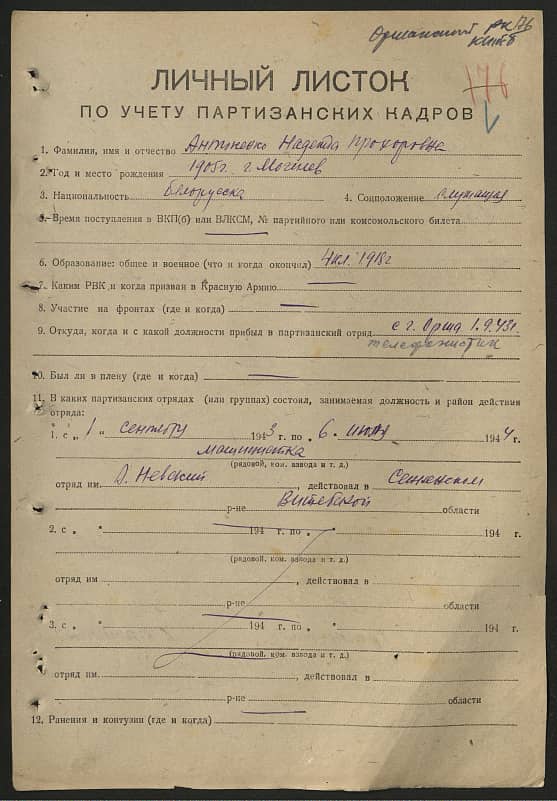 Оршанский РК
КП(б)Б
176
176
ЛИЧНЫЙ ЛИСТОК
ПО УЧЕТУ ПАРТИЗАНСКИХ КАДРОВ
1. Фамилия, имя и отчество Надежда Прохоровна
2. Год и место рождения 1905г. г. Могилев
3. Национальность белорусска 4. Соцположение служащая
5. Время поступления в ВКП(б) или ВЛКСМ, № партийного или комсомольского билета —
6. Образование: общее и военное (что и когда окончил) 4 кл. 1918г
7. Каким РВК и когда призван в Красную Армию —
8. Участие на фронтах (где и когда) —
9. Откуда, когда и с какой должности прибыл в партизанский отряд с г. Орша 1.9.43г.
телефонистки
10. Был ли в плену (где и когда) —
11. В каких партизанских отрядах (или группах) состоял, занимаемая должность и район действия
отряда:
1. с „ 1 “ сентября 1943 г. по „ 6. июля 1944 г.
машинистка
(рядовой, ком. взвода и т. д.)
отряд им А. Невский, действовал в Сенненском
р-не Витебской области
2. с „ “ 194 г. по „ “ 194 г.
(рядовой, ком. взвода и т. д.)
отряд им , действовал в
р-не области
3. с „ “ 194 г. по „ “ 194 г.
(рядовой, ком. взвода и т. д.)
отряд им. , действовал в
р-не области
12. Ранения и контузии (где и когда) —